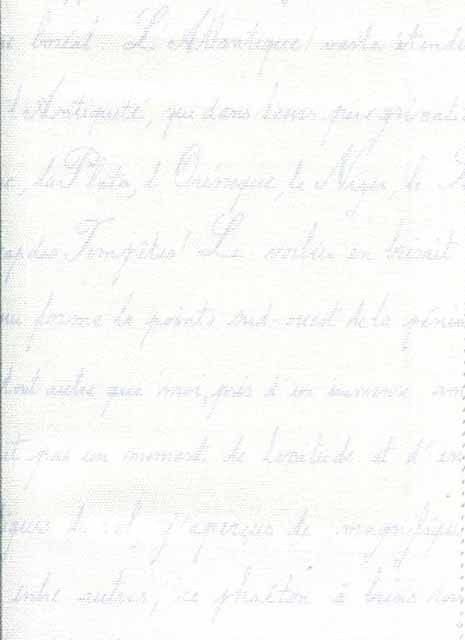 boréal. L'Atlantique! vaste étend
d'Antiquité, qui dans leurs pérégrinati
la Plata, l'Orénoque, le Niger, le
cap des Tempêtes! Le voilier en
forme la pointe sud-ouest de la pénin
tout autre que moi, pris d'un immense
pas un moment de lassitude et d'en
j'aperçus de magnifique
entre autres, ce phaéton à brins